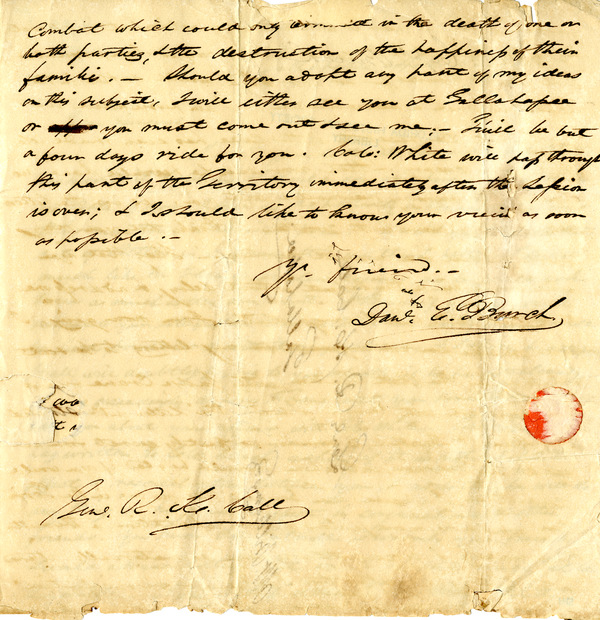 Combat which could only in the death of one or
both parties, & the destruction of the happiness of their
familis. — Should you adopt any part of my ideas
on this subject, I will either see you at Tallahassee
or you must come out & see me; — It will be but
a four days ride for you. Col: White will pass through
this part of the Territory immediately after the Session
is over; & I should like to know your views as soon
as possible. —
Yr. friend. —
Danl. E. Burch.
Genl. R. K. Call